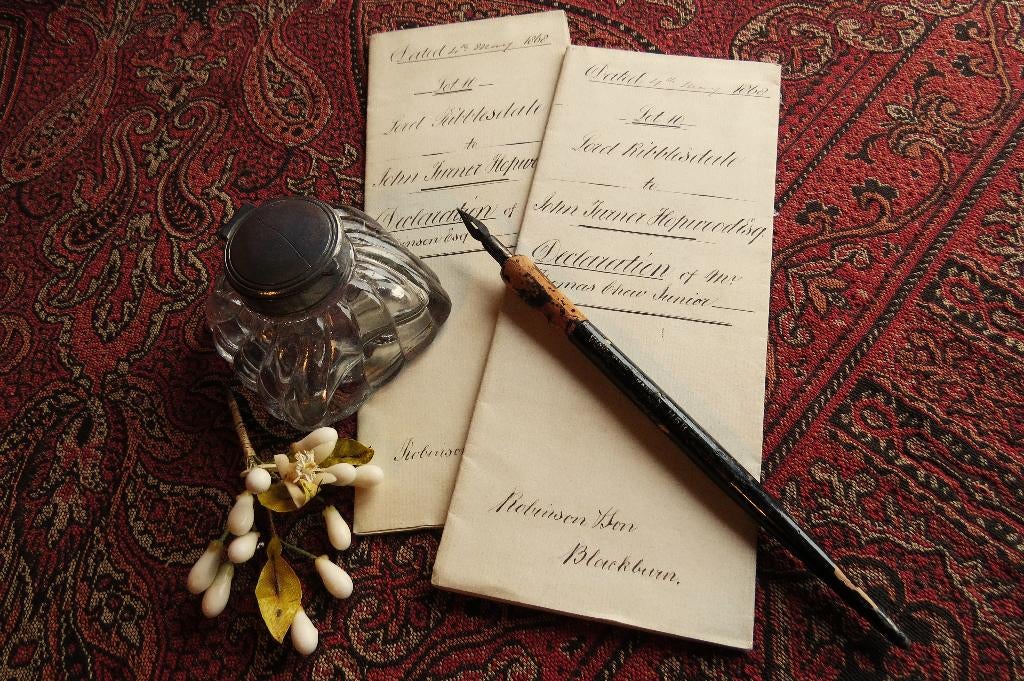 Dated 4th May 1868
Lot 10
Lord Ribblesdale
to
John Turner Hopwo
Declaration of
inson Esq
Robinso
Dated 4th May 1868
Lot 10
Lord Ribblesdale
to
John Turner Hopwood Esq
Declaration of Mr
omas Chew Junior
Robinson & Son
Blackburn.